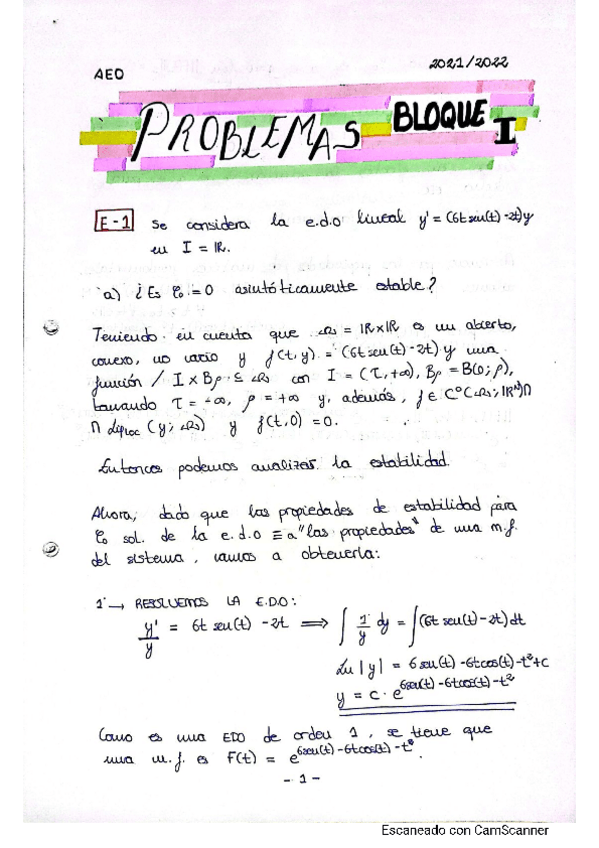 AEO
2021/2022
PROBLEMAS BLOQUE I
E-1 Se considera la e.d.o lineal y' = (6t sen(t) - 2t)y
en I = IR.
a) ¿Es φ₀ = 0 asintóticamente estable?
Teniendo en cuenta que Ω = IR×IR es un abierto,
conexo, no vacío y f(t,y) = (6t sen(t) - 2t) y una
función / I × Bρ ⊆ Ω con I = (τ, +∞), Bρ = B(0; ρ),
tomando τ = -∞, ρ = +∞ y, además, f ∈ C⁰(Ω; IRᴺ) ∩
∩ Liploc (y; Ω) y f(t,0) = 0.
Entonces podemos analizar la estabilidad.
Ahora, dado que las propiedades de estabilidad para
φ₀ sol. de la e.d.o ≡ a "las propiedades" de una m.f.
del sistema, vamos a obtenerla:
1 → RESOLVEMOS LA E.D.O:
y'/y = 6t sen(t) - 2t ⟹ ∫ 1/y dy = ∫(6t sen(t) - 2t) dt
Ln|y| = 6 sen(t) - 6t cos(t) - t² + c
y = c · e^(6sen(t) - 6t cos(t) - t²)
Como es una EDO de orden 1, se tiene que
una m.f. es F(t) = e^(6sen(t) - 6t cos(t) - t²).
- 1 -
Escaneado con CamScanner